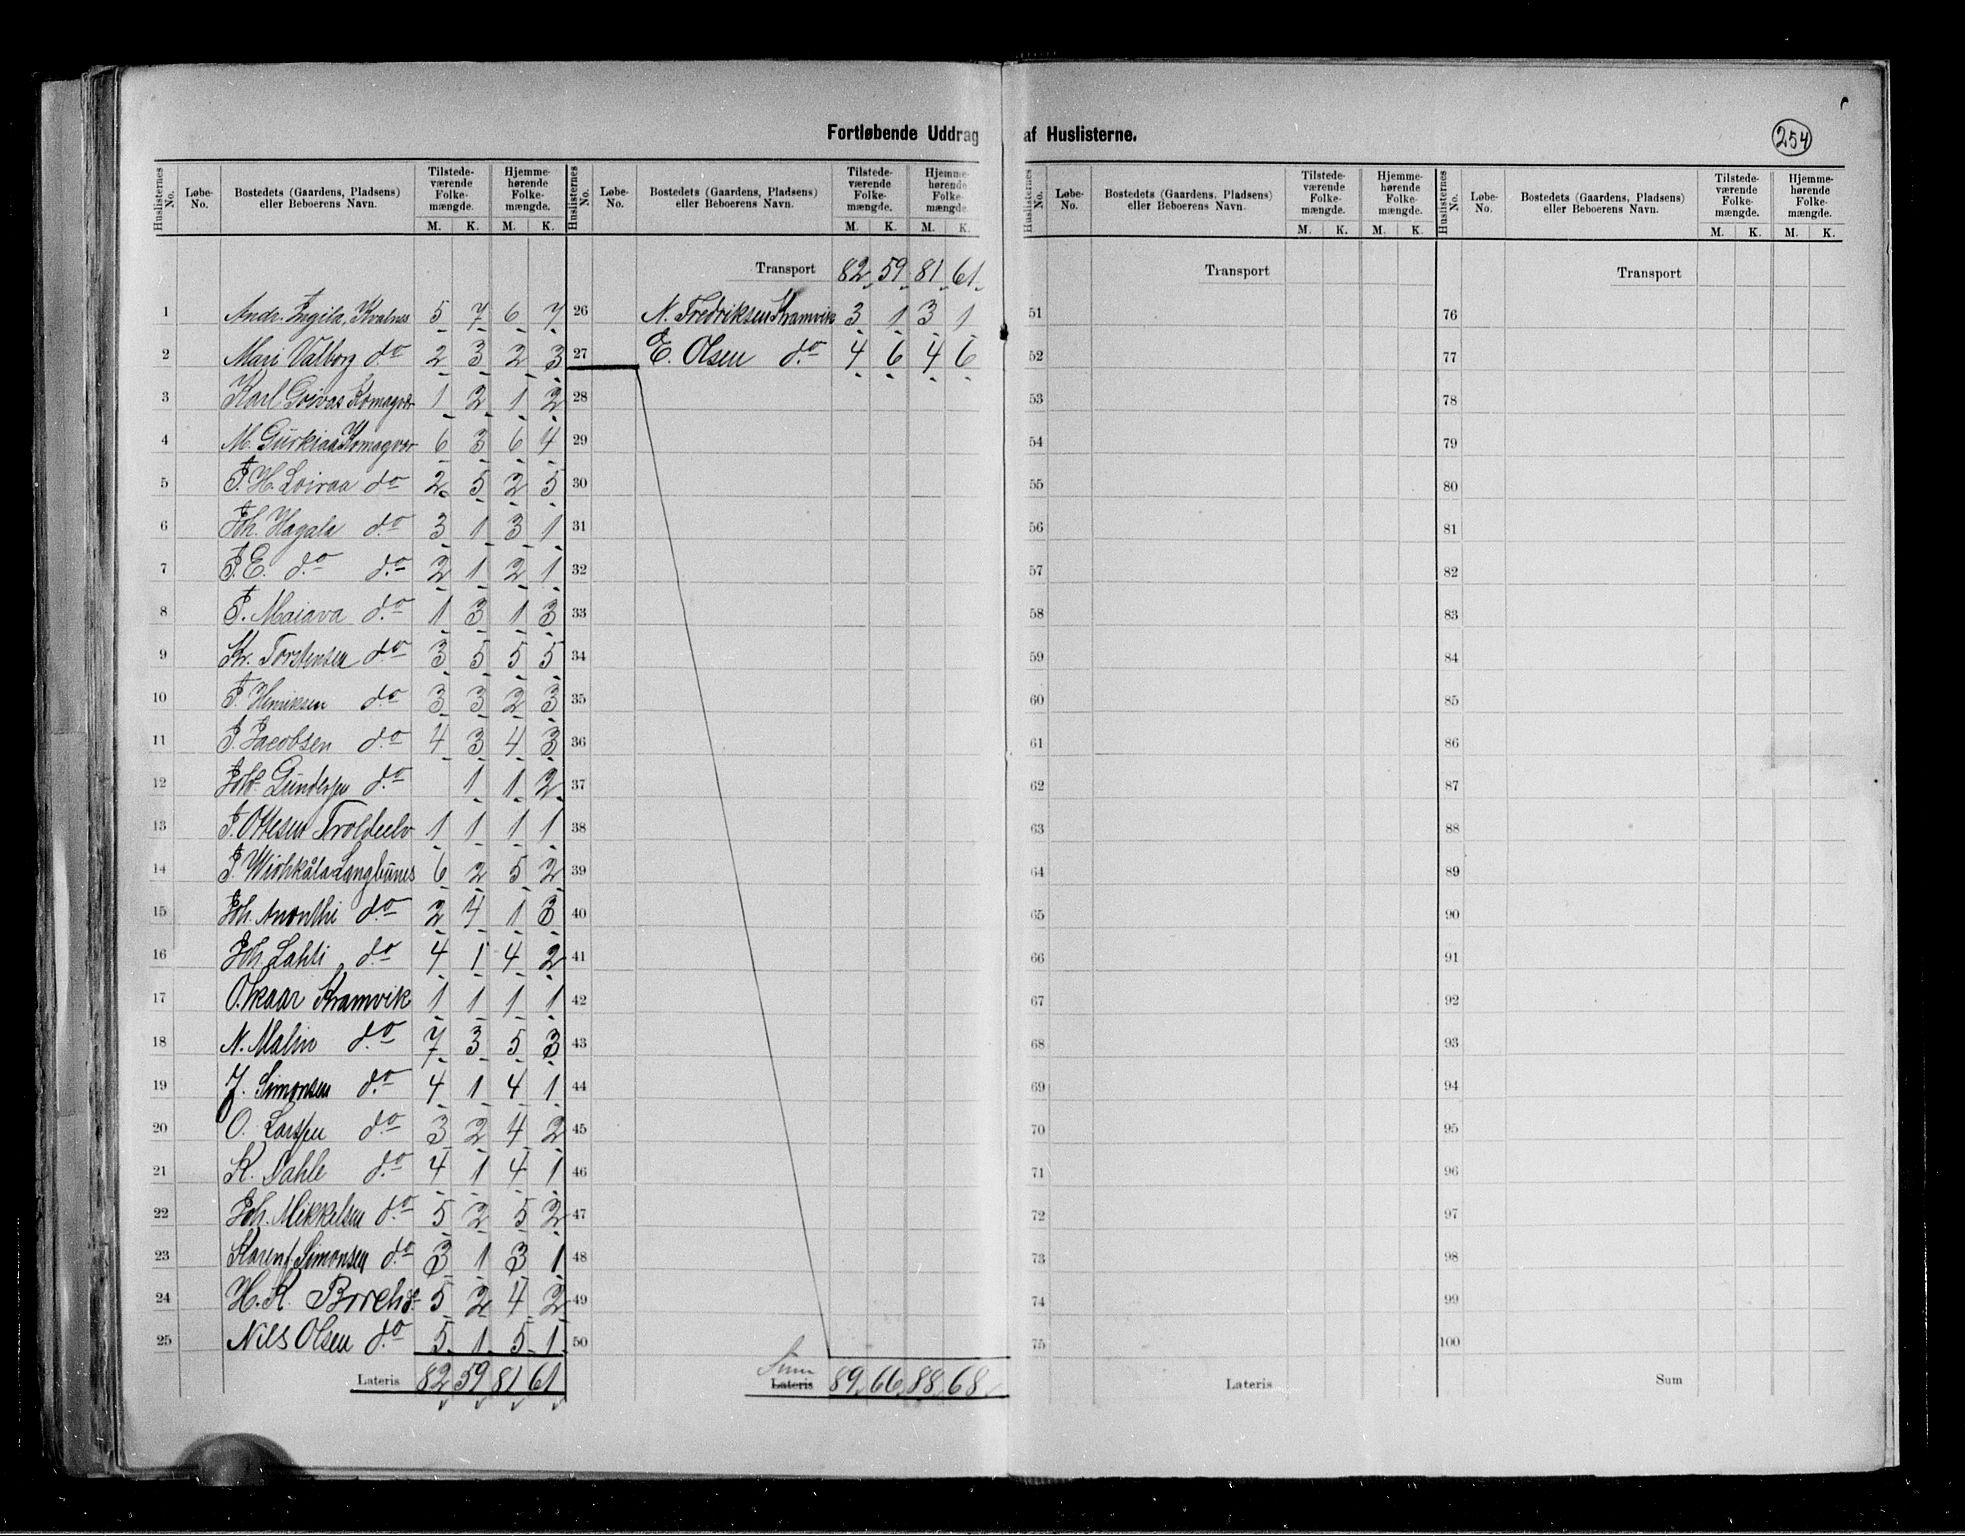 Fortløbende Uddrag af Huslisterne.
254
Huslisternes No. Løbe-No. Bostedets (Gaardens, Pladsens) eller Beboerens Navn. Tilstedeværende Folkemængde. M. K. Hjemmehørende Folkemængde. M. K.
1 Andr. Ingila, Kvalnes 5 7 6 7
2 Mari Valborg do 2 3 2 3
3 Karl Goivas Komagvær 1 2 1 2
4 M. Gurkiaa Komagvær 6 3 6 4
5 J. H. Loiraa do 2 5 2 5
6 Joh. Hagala do 3 1 3 1
7 J. E. do do 2 1 2 1
8 J. Maiava do 1 3 1 3
9 Kr. Torstensen do 3 5 5 5
10 J. Henriksen do 3 3 2 3
11 J. Jacobsen do 4 3 4 3
12 Joh. Gundersen do 1 1 2
13 J. Ottesen Troldelv 1 1 1 1
14 J. Wiohkåla Langbunes 6 2 5 2
15 Joh. Anonthi do 2 4 1 3
16 Joh. Lahti do 4 1 4 2
17 O. Kaar Kramvik 1 1 1 1
18 N. Malin do 7 3 5 3
19 J. Simonsen do 4 1 4 1
20 O. Larssen do 3 2 4 2
21 K. Dahle do 4 1 4 1
22 Joh. Mikkelsen do 5 2 5 2
23 Karen J Simonsen do 3 1 3 1
24 H. K. Borch do 5 2 4 2
25 Nils Olsen do 5 1 5 1
Lateris 82 59 81 61
Huslisternes No. Løbe-No. Bostedets (Gaardens, Pladsens) eller Beboerens Navn. Tilstedeværende Folkemængde. M. K. Hjemmehørende Folkemængde. M. K.
Transport 82 59 81 61
26 N. Fredriksen Kramvik 3 1 3 1
27 E. Olsen do 4 6 4 6
28
29
30
31
32
33
34
35
36
37
38
39
40
41
42
43
44
45
46
47
48
49
50
Sum
Lateris 89 66 88 68
Huslisternes No. Løbe-No. Bostedets (Gaardens, Pladsens) eller Beboerens Navn. Tilstedeværende Folkemængde. M. K. Hjemmehørende Folkemængde. M. K.
Transport
51
52
53
54
55
56
57
58
59
60
61
62
63
64
65
66
67
68
69
70
71
72
73
74
75
Lateris
Huslisternes No. Løbe-No. Bostedets (Gaardens, Pladsens) eller Beboerens Navn. Tilstedeværende Folkemængde. M. K. Hjemmehørende Folkemængde. M. K.
Transport
76
77
78
79
80
81
82
83
84
85
86
87
88
89
90
91
92
93
94
95
96
97
98
99
100
Sum